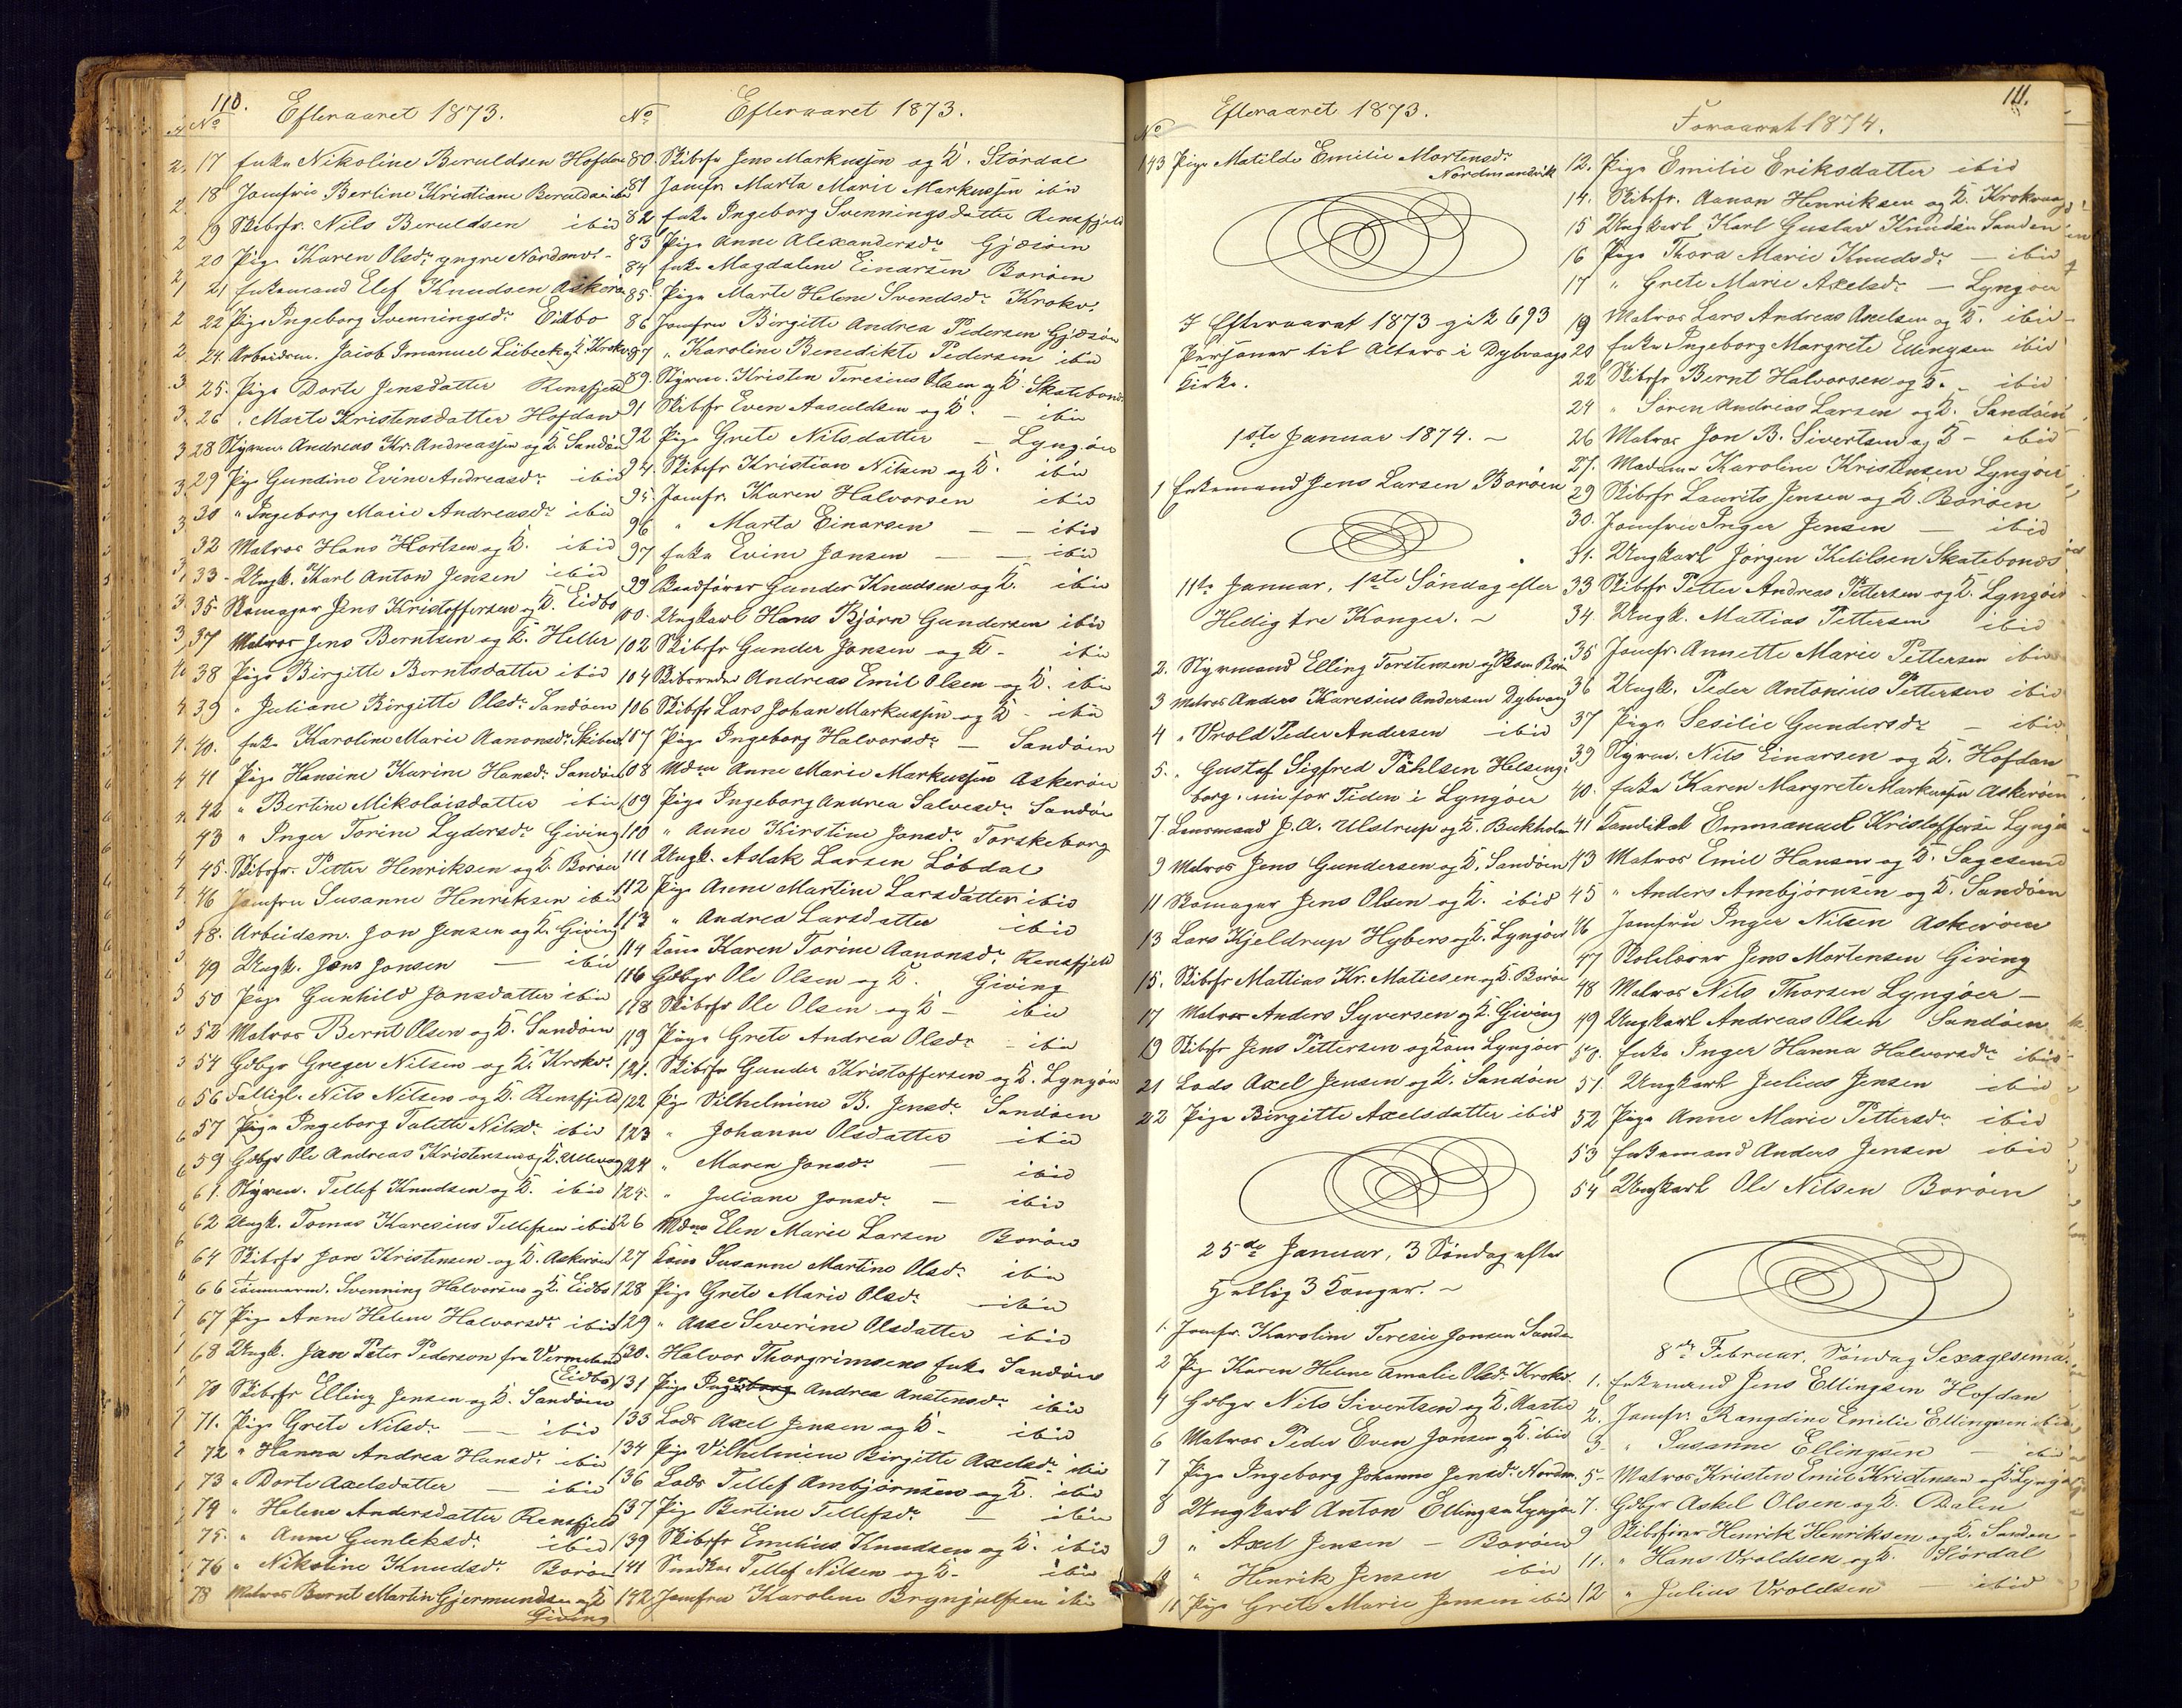 110.
Efteraaret 1873.
No
17 Enke Nikoline Beruldsen Hofdan
18 Jomfru Berline Kristiane Beruldsen ibid
19 Skibsfr. Nils Beruldsen ibid
20 Pige Karen Olsdr. yngre Nordmv.
21 Enkemand Elef Knudsen Askerø
22 Pige Ingeborg Svenningsdr. Eidbo
24. Arbeidsm. Jacob Imanuel Lübeck og K. Krokv.
25. Pige Dorte Jensdatter Rensfjeld
26 " Marte Kristensdatter Hofdan
28 Styrm. Andreas Kr. Andreassen og K. Sandøen
29 Pige Gundine Evine Andreasdr. ibid
30 " Ingeborg Marie Andreasdr. ibid
32 Matros Hans Hortsen og K. ibid
33 Ungk. Karl Anton Jensen ibid
35 Skomager Jens Kristoffersen og K. Eidbo
37 Matros Jens Berntsen og K. Heller
38 Pige Birgitte Berntsdatter ibid
39 " Juliane Birgitte Olsdr. Sandøen
40. Enke Karoline Marie Aanonsdr.
41 Pige Hansine Karine Hansdr. Sandøen
42 " Bertine Mikolaisdatter ibid
43 " Inger Torine Lydersdr. Giving
45. Skibsfr. Petter Henriksen og K. Borøen
46 Jomfru Susanne Henriksen ibid
48. Arbeidsm. Jon Jensen og K. Giving
49 Ungk. Jens Jonsen — ibid
50 Pige Gunhild Jonsdatter ibid
52 Matros Bernt Olsen og K. Sandøen
54 Gdbgr Greger Nilsen og K. Krokv.
56 Fattigl. Nils Nilsen og K. Rensfjeld
57 Pige Ingeborg Talette Nilsdr. ibid
59 Gdbgr Ole Andreas Kristensen og K.
61. Styrm. Tellef Knudsen og K. ibid
62 Ungk. Tomas Karesius Tellefsen ibid
64 Skibsfr Jon Kristensen og K. Askerøen
66 Tømmerm. Svenning Halvorsen og K. Eidbo
67 Pige Anne Helene Halvorsdr. ibid
68 Ungk. Jan Peter Pederson fra Vermeland
(Eidbo)
70 Skibsfr Elling Jensen og K. Sandøen
71. Pige Grete Nilsdr. — ibid
72 " Hanna Andrea Hansdr. ibid
73 " Dorte Axelsdatter — ibid
74 " Helene Andersdatter Rensfjeld
75. " Anne Gunleksdr. ibid
76 " Nikoline Knudsdr. Borøen
78 Matros Bernt Martin Gjermundsen og K
Giving
No
Efteraaret 1873.
80. Skibsfr Jens Markussen og K. Stördal
81 Jomfr. Marta Marie Markussen ibid
82 Enke Ingeborg Svenningsdatter Rensfjeld
83 Pige Anne Alexandersdr. Gjæsöen
84 Enke Magdalene Einarsen Borøen
85. Pige Marte Helene Svendsdr. Krokv.
86 Jomfru Birgitte Andrea Pedersen Gjæsøen
87 " Karoline Benedikte Pedersen ibid
89. Styrm. Kristen Teresius Olsen og K. Skatebond.
91 Skibsfr Even Aasuldsen og K. — ibid
92 Pige Grete Nilsdatter — Lyngøer
94. Skibsfr Kristian Nilsen og K. ibid
95 Jomfr. Karen Halvorsen ibid
96 " Marta Einarsen — ibid
97 Enke Evine Jonsen — ibid
99 Baadfører Gunder Knudsen og K. ibid
100. Ungkarl Hans Bjørn Gundersen ibid
102 Skibsfr Gunder Jonsen og K. ibid
104 Skibsreder Andreas Emil Olsen og K. ibid
106 Skibsfr Lars Johan Markussen og K ibid
107 Pige Ingeborg Halvorsdr. — Sandøen
108 Mdme Anne Marie Markussen Askerøen
109 Pige Ingeborg Andrea Salvesdr. Sandøen
110 " Anne Kirstine Jonsdr. Torskeberg
111 Ungk. Aslak Larsen Løbdal
112 Pige Anne Martine Larsdatter ibid
113 " Andrea Larsdatter ibid
114 Kone Karen Torine Aanonsdr. Rensfjeld
116 Gdbgr Ole Olsen og K. Giving
118 Skibsfr Ole Olsen og K. ibid
119 Pige Grete Andrea Olsdr. ibid
121. Skibsfr Gunder Kristoffersen og K. Lyngøer
122 Pige Vilhelmine B. Jensdr. Sandøen
123 " Johanne Olsdatter ibid
124 " Maren Jonsdr. — ibid
125. " Juliane Jonsdr. — ibid
126 Mdme Elen Marie Larsen Borøen
127 Kone Susanne Martine Olsdr. ibid
128 Pige Grete Marie Olsdr. ibid
129 " Aase Severine Olsdatter ibid
130. Halvor Thorgrimsens Enke Sandøen
131 Pige Inger Andrea Anstensdr. ibid
133 Lods Axel Jensen og K. ibid
134 Pige Vilhelmine Birgitte Axelsdr. ibid
136 Lods Tellef Ambjörnsen og K. ibid
137 Pige Bertine Tellefsdr. — ibid
139 Skibsfr Emelius Knudsen og K. ibid
141 Snedker Tellef Nilsen og K. ibid
142 Jomfru Karoline Brynjulfsen ibid
No
Efteraaret 1873.
143 Pige Matilde Emilie Mortensdr.
Nordmandvik
I Efteraaret 1873 gik 693
Personer til Alters i Dybvaags
Kirke.
1ste Januar 1874. —
1 Enkemand Jens Larsen Borøen
11te Januar, 1ste Söndag efter
Hellig tre Konger. —
2. Styrmand Elling Torstensen og Kone Borøen
3 Matros Anders Karesius Andersen Dybvaag
4 " Vrold Peder Andersen ibid
5. " Gustaf Sigfred Påhlsen Helsing-
borg, nu for Tiden i Lyngøer
7. Lensmand J. A. Ulstrup og K. Bukholm
9 Matros Jens Gundersen og K. Sandøen
11 Skomager Jens Olsen og K. ibid
13 Lars Kjeldrup Hybers og K. Lyngøer
15. Skibsfr Mattias Kr. Matiesen og K. Borøen
17 Matros Anders Syversen og K. Giving
19 Skibsfr Jens Pettersen og Kone Lyngøer
21 Lods Axel Jensen og K. Sandøen
22 Pige Birgitte Axelsdatter ibid
25de Januar, 3 Söndag efter
Hellig 3 Konger. —
1. Jomfr. Karoline Teresie Jonsen Sandø
2 Pige Karen Helene Amalie Olsdr. Krokv.
4 Gdbgr Nils Sivertsen og K. Aaste
6 Matros Peder Even Jonsen og K. ibid
7 Pige Ingeborg Johanne Jensdr. Nordm.
8 Ungkarl Anton Ellingsen Lyngøer
9 " Axel Jensen — Borøen
10 " Henrik Jensen ibid
11 Pige Grete Marie Jensen ibid
111.
Foraaret 1874.
12. Pige Emilie Eriksdatter ibid
14. Skibsfr. Aanon Henriksen og K. Krokvaag
15 Ungkarl Karl Gustav Knudsen Sanden
16 Pige Thora Marie Knudsdr. — ibid
17 " Grete Marie Axelsdr. — Lyngøer
19 Matros Lars Andreas Axelsen og K. ibid
20 Enke Ingeborg Margrete Ellingsen ibid
22 Skibsfr Bernt Halvorsen og K. ibid
24 " Sören Andreas Larsen og K. Sandøen
26 Matros Jon B. Sivertsen og K — ibid
27. Madame Karoline Kristensen Lyngøer
29 Skibsfr Laurits Jensen og K. Borøen
30. Jomfru Inger Jensen — ibid
31. Ungkarl Jørgen Ketilsen Skatebonds
33 Skibsfr Petter Andreas Pettersen og K. Lyngøer
34 Ungk. Mattias Pettersen ibid
35 Jomfr. Annette Marie Pettersen ibid
36 Ungk. Peder Antonius Pettersen ibid
37 Pige Sesilie Gundersdr. — ibid
39 Styrm. Nils Einarsen og K. Hofdan
40. Enke Karen Margrete Markussen Askerøen
41 Kandidat Emmanuel Kristoffersen Lyngør
43 Matros Emil Hansen og K. Sagesund
45 " Anders Ambjörnsen og K. Sandøen
46 Jomfru Inger Nilsen Askerøen
47 Skolelærer Jens Mortensen Giving
48 Matros Nils Thorsen Lyngøer —
49 Ungkarl Andreas Olsen Sandøen
50. Enke Inger Hanna Halvorsdr. ibid
51 Ungkarl Julius Jensen ibid
52 Pige Anne Marie Pettersdr. ibid
53 Enkemand Anders Jensen ibid
54 Ungkarl Ole Nilsen Borøen
8de Februar, Söndag Sexagesima.
1. Enkemand Jens Ellingsen Hofdan
2. Jomfr. Rangdine Emilie Ellingsen ibid
3. " Susanne Ellingsen — ibid
5 Matros Kristen Emil Kristensen og K. Lyngør
7. Gdbgr Askel Olsen og K. Dalen
9 Skibsfører Henrik Henriksen og K. Sanden
11. " Hans Vroldsen og K. Stördal
12 " Julius Vroldsen — ibid